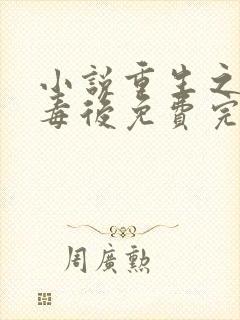 小說重生之
毒後免費完
周廣勲